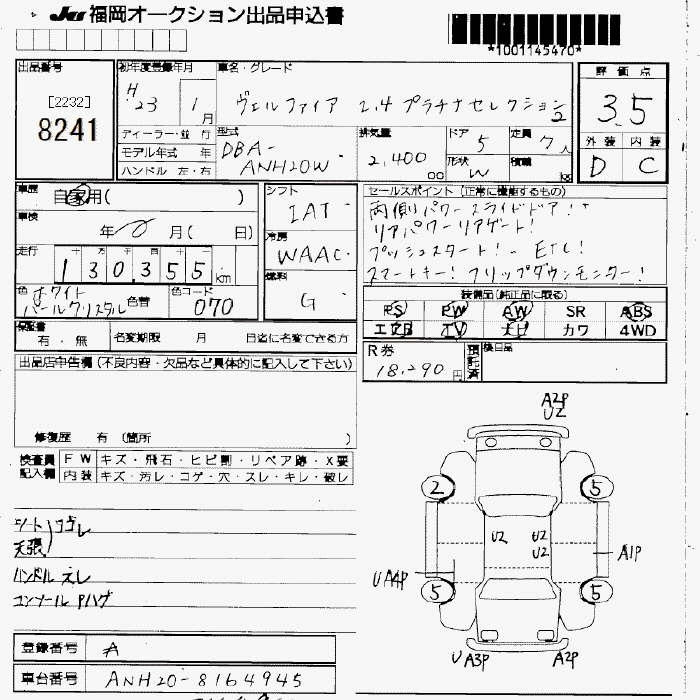 JU 福岡オークション出品申込書
*1001145470*
出品番号
[2232]
8241
初年度登録年月
H 23 1月
車名・グレード
ヴェルファイア 2.4 プラチナセレクション2
評価点
3.5
外装 内装
D C
ディーラー・並 行
モデル年式 年
ハンドル 左・右
型式
DBA-
ANH20W
排気量
2,400
00
ドア 5
形状 W
定員 7人
積載 kg
車歴
自家用( )
車検
年 月( 日)
走行
130,355km
色 ホワイト
パールクリスタル
色替
色コード
070
シフト
IAT
冷房
WAAC
燃料
G
セールスポイント (正常に機能するもの)
両側パワースライドドア!
リアパワーリアゲート!
プッシュスタート! ETC!
スマートキー! フリップダウンモニター!
装備品(純正品に限る)
PS PW AW SR ABS
エアB TV ナビ カワ 4WD
保証書
有・無
名変期限 月 日迄に名変できる方
R券
18,290円
預託済
後日品
出品店申告欄(不良内容・欠品など具体的に記入して下さい)
修復歴 有 (箇所 )
検査員
記入欄
FW キズ・飛石・ヒビ割・リペア跡・X要
内装 キズ・汚レ・コゲ・穴・スレ・キレ・破レ
シート
天張
ヨゴレ
ハンドル スレ
コンソール Pハゲ
A2P
U2
2
5
U2
U2
U2
A1P
UA4P
5
5
UA3P
A2P
登録番号 A
車台番号 ANH20-8164945